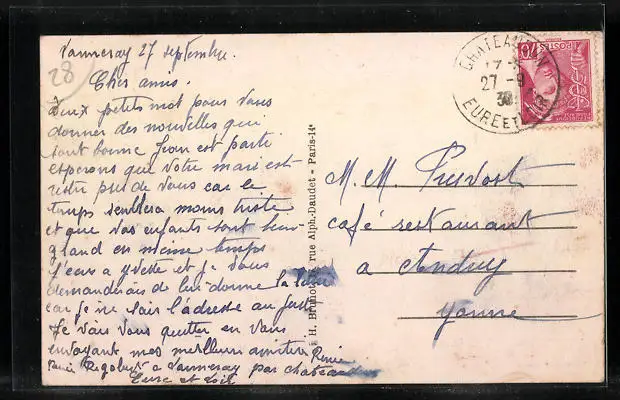 Vanneray 27 septembre.
28
Cher amis.
deux petits mot pour vous
donner des nouvelles qui
sont bonne Jean est parti
esperons que votre mari est
resté pres de vous car le
temps semblera moins triste
et que vos enfants sont
grand en meme temps
J'ecris a Yvette et je vous
demanderais de lui donne la lettre
car je ne sais l'adresse au juste
Je vais vous quitter en vous
envoyant mes meilleurs amities Renée
Renée a Vanneray par chateaudun
Eure et Loir
H. rue Alph.-Daudet - Paris-14e
CHATEAUDUN
27-9
38
EURE ET LOIR
POSTES
70
M. M. Prevost
café restaurant
a Andry
Yonne